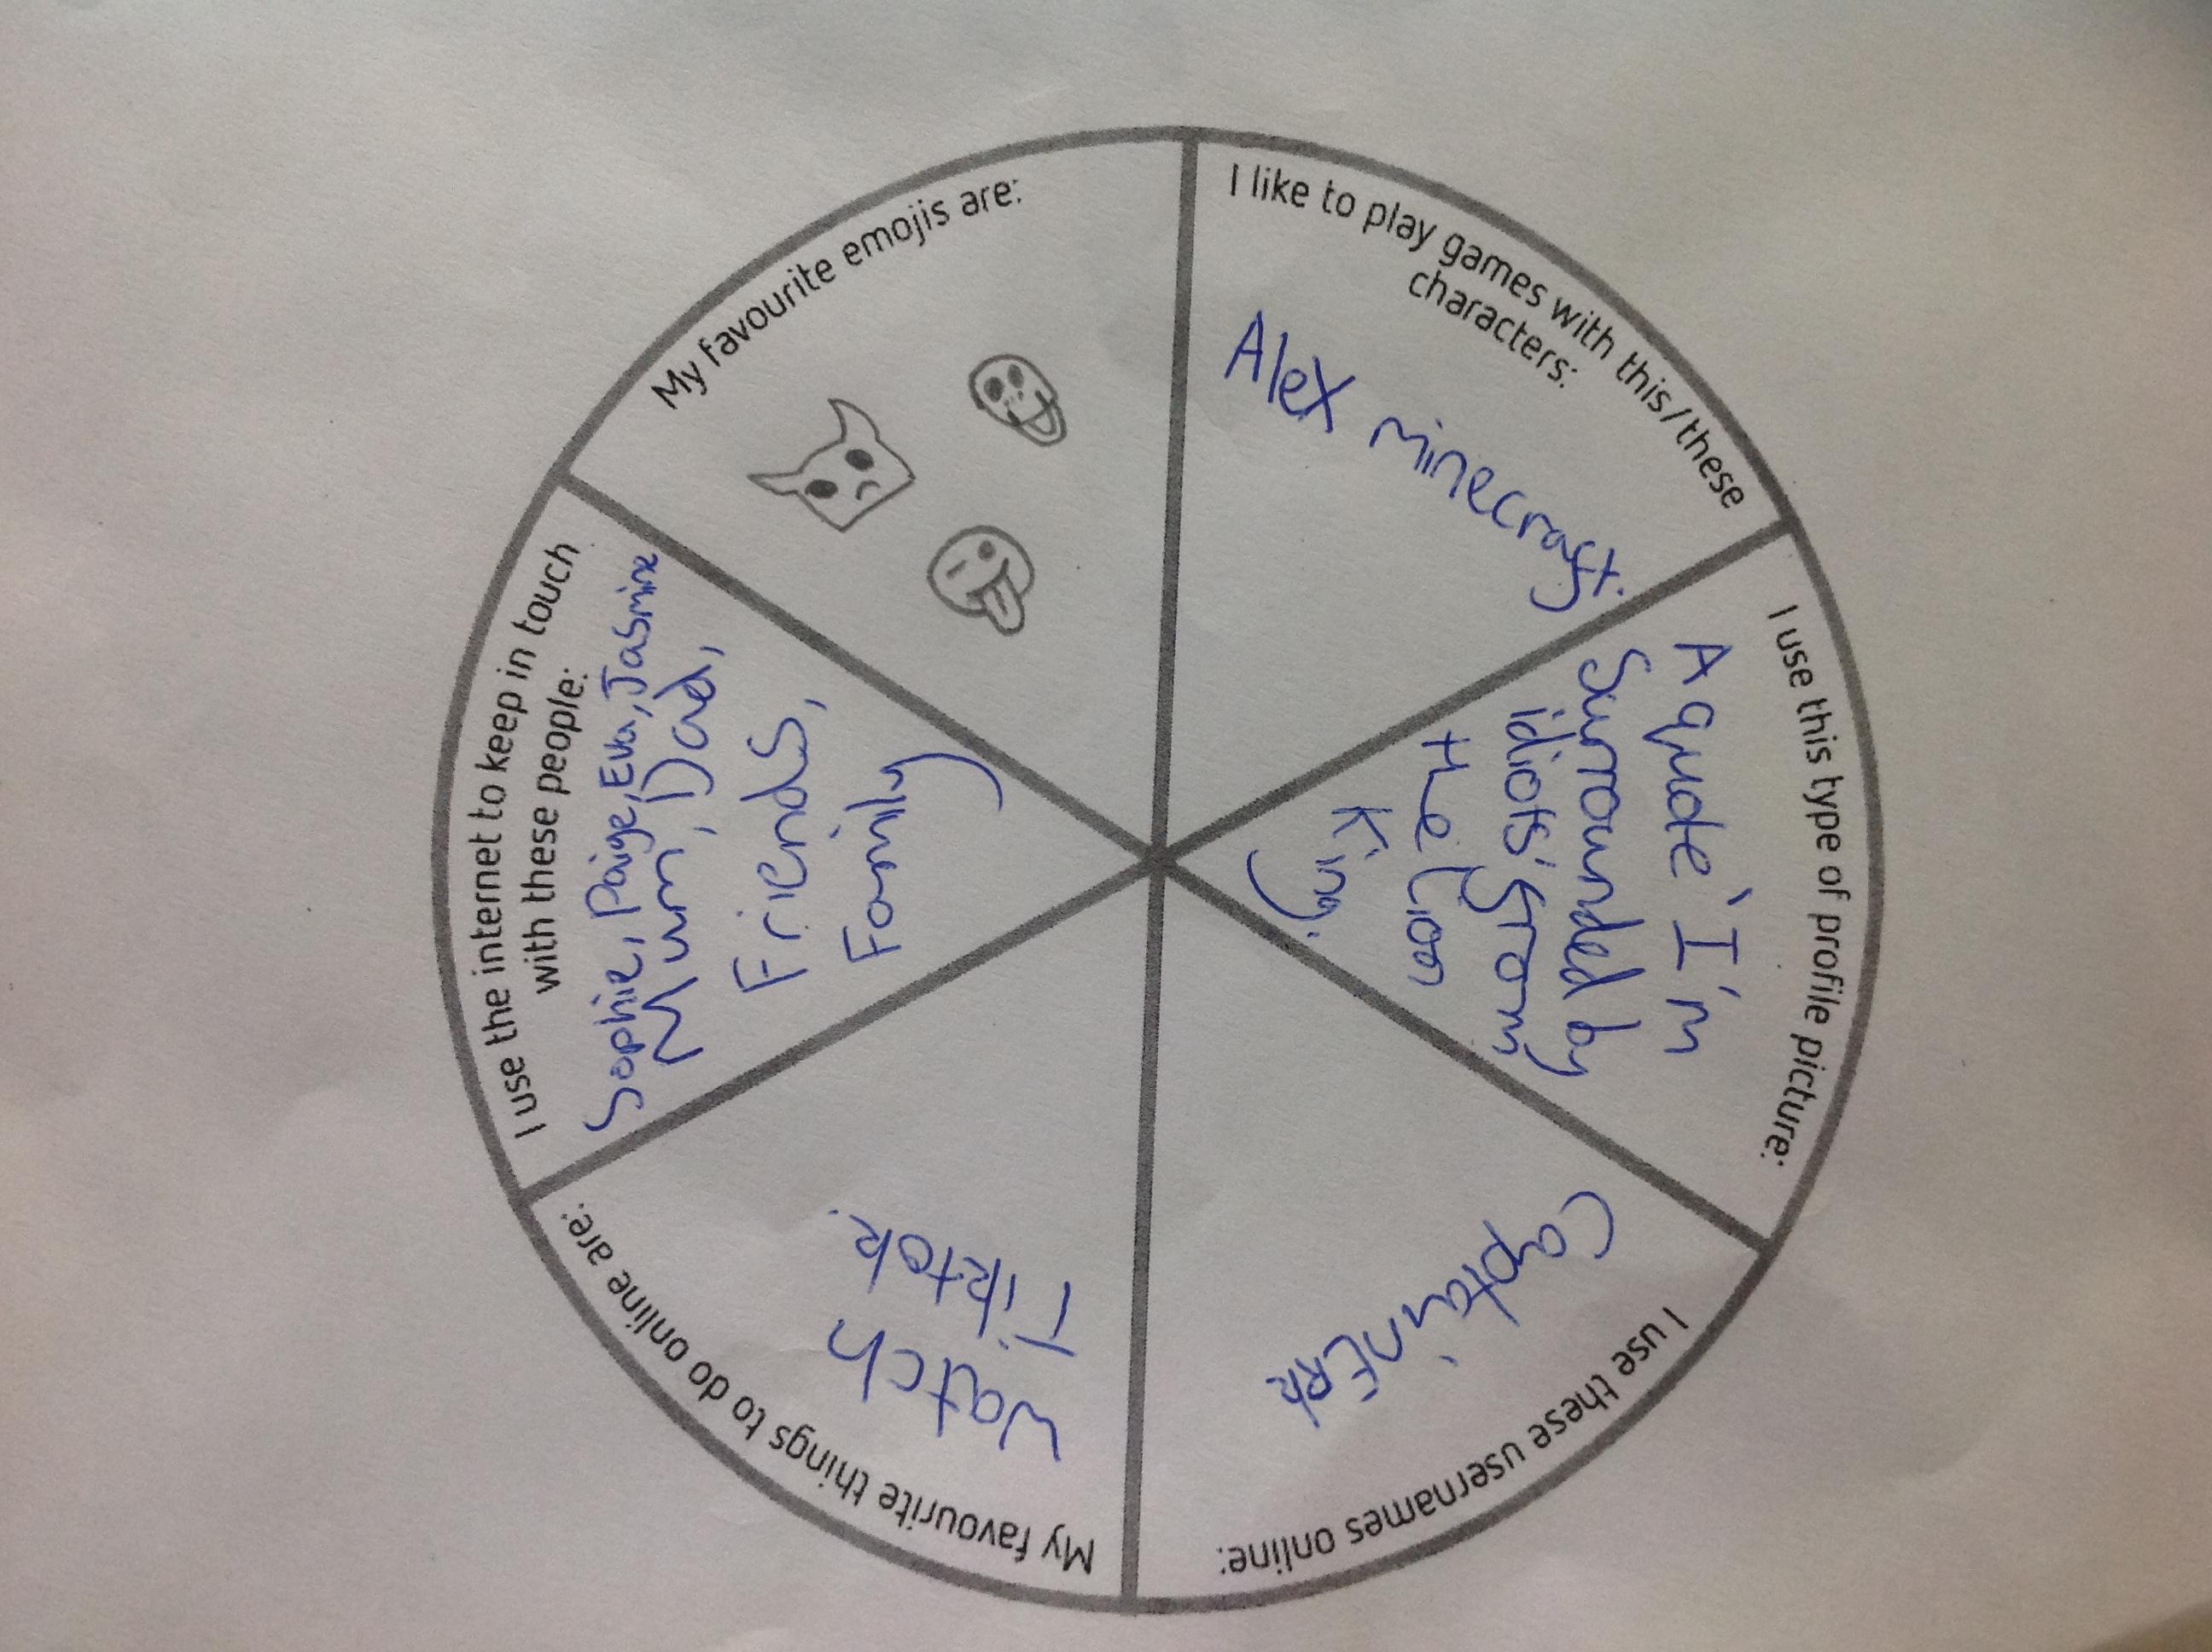 My favourite emojis are:
I like to play games with this/these
characters:
Alex minecraft.
I use this type of profile picture:
A quote 'I'm
Surrounded by
idiots' from
the Lion
King.
I use these usernames online:
CaptainERR
My favourite things to do online are:
Watch
Tiktok.
I use the internet to keep in touch
with these people:
Sophie, Paige, Eva, Jasmine
Mum, Dad,
Friends,
Family